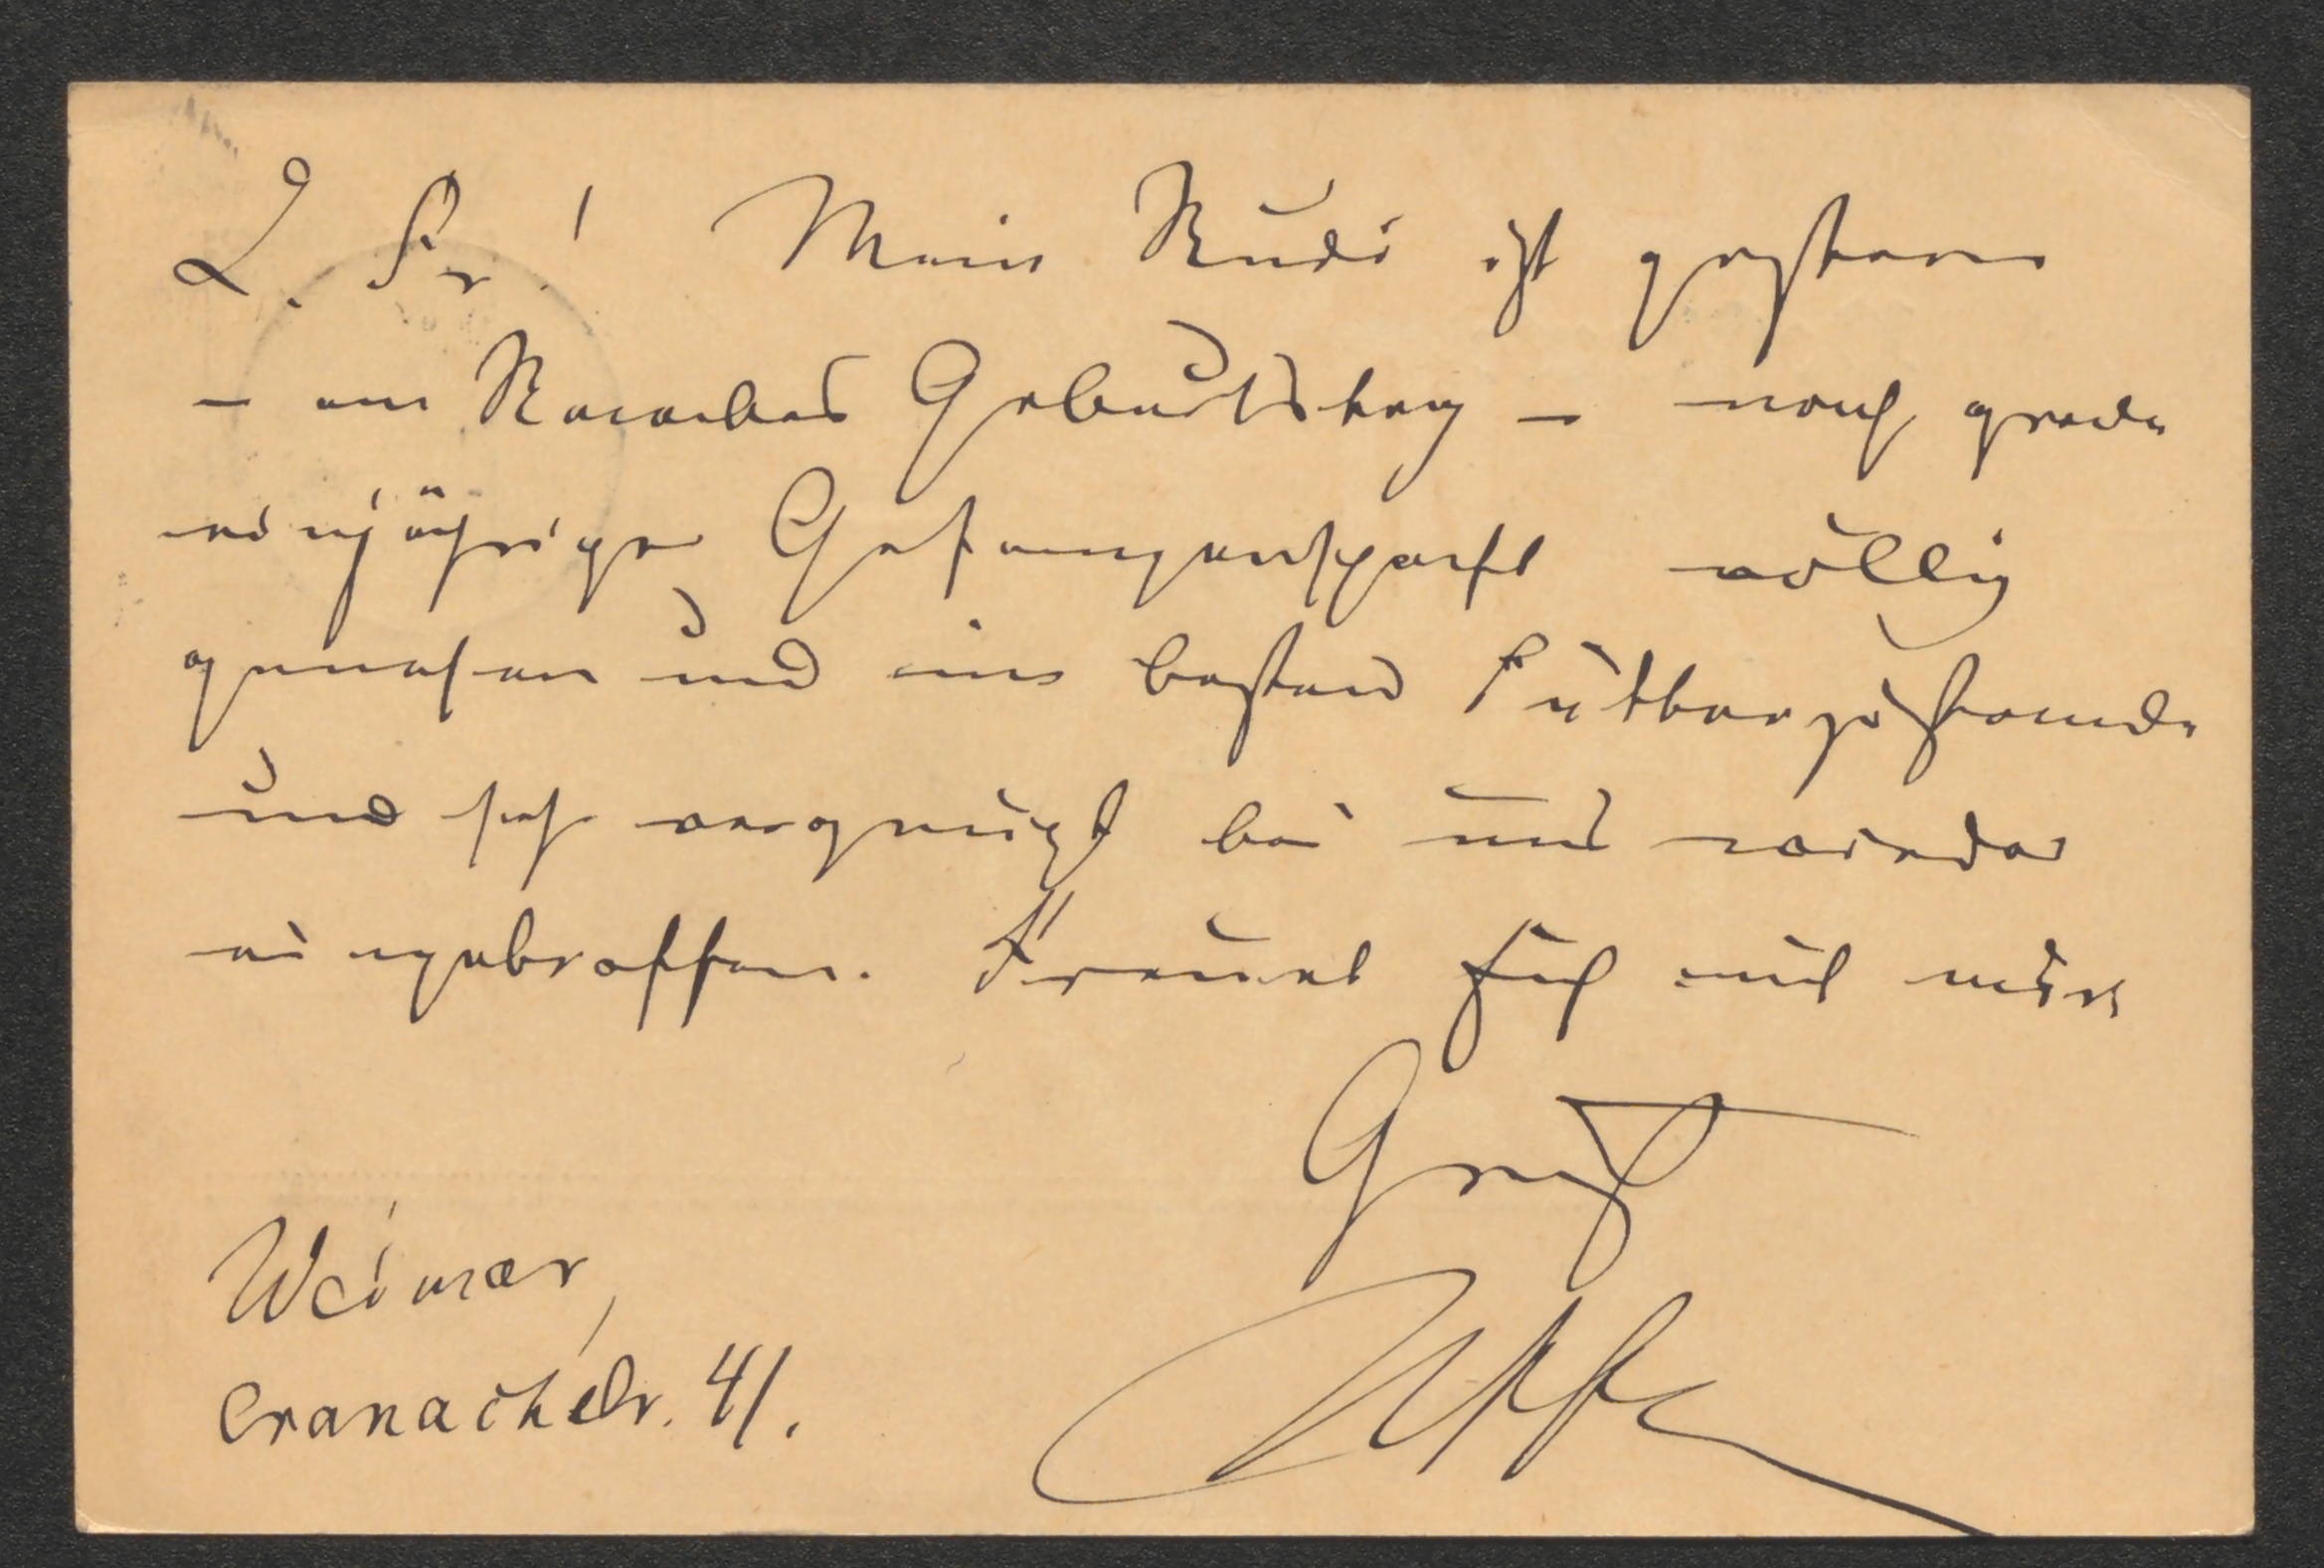 L. Fr! Mein Rudi ist gestern
– am Raabes Geburtstag – nach grade
einjähriger Gefangenschaft völlig
genesen und im besten Futterzustande
und sehr vergnügt bei uns wieder
eingetroffen. Freuet Euch mit mir
Gruß
Weimar,
Cranachstr. 41.